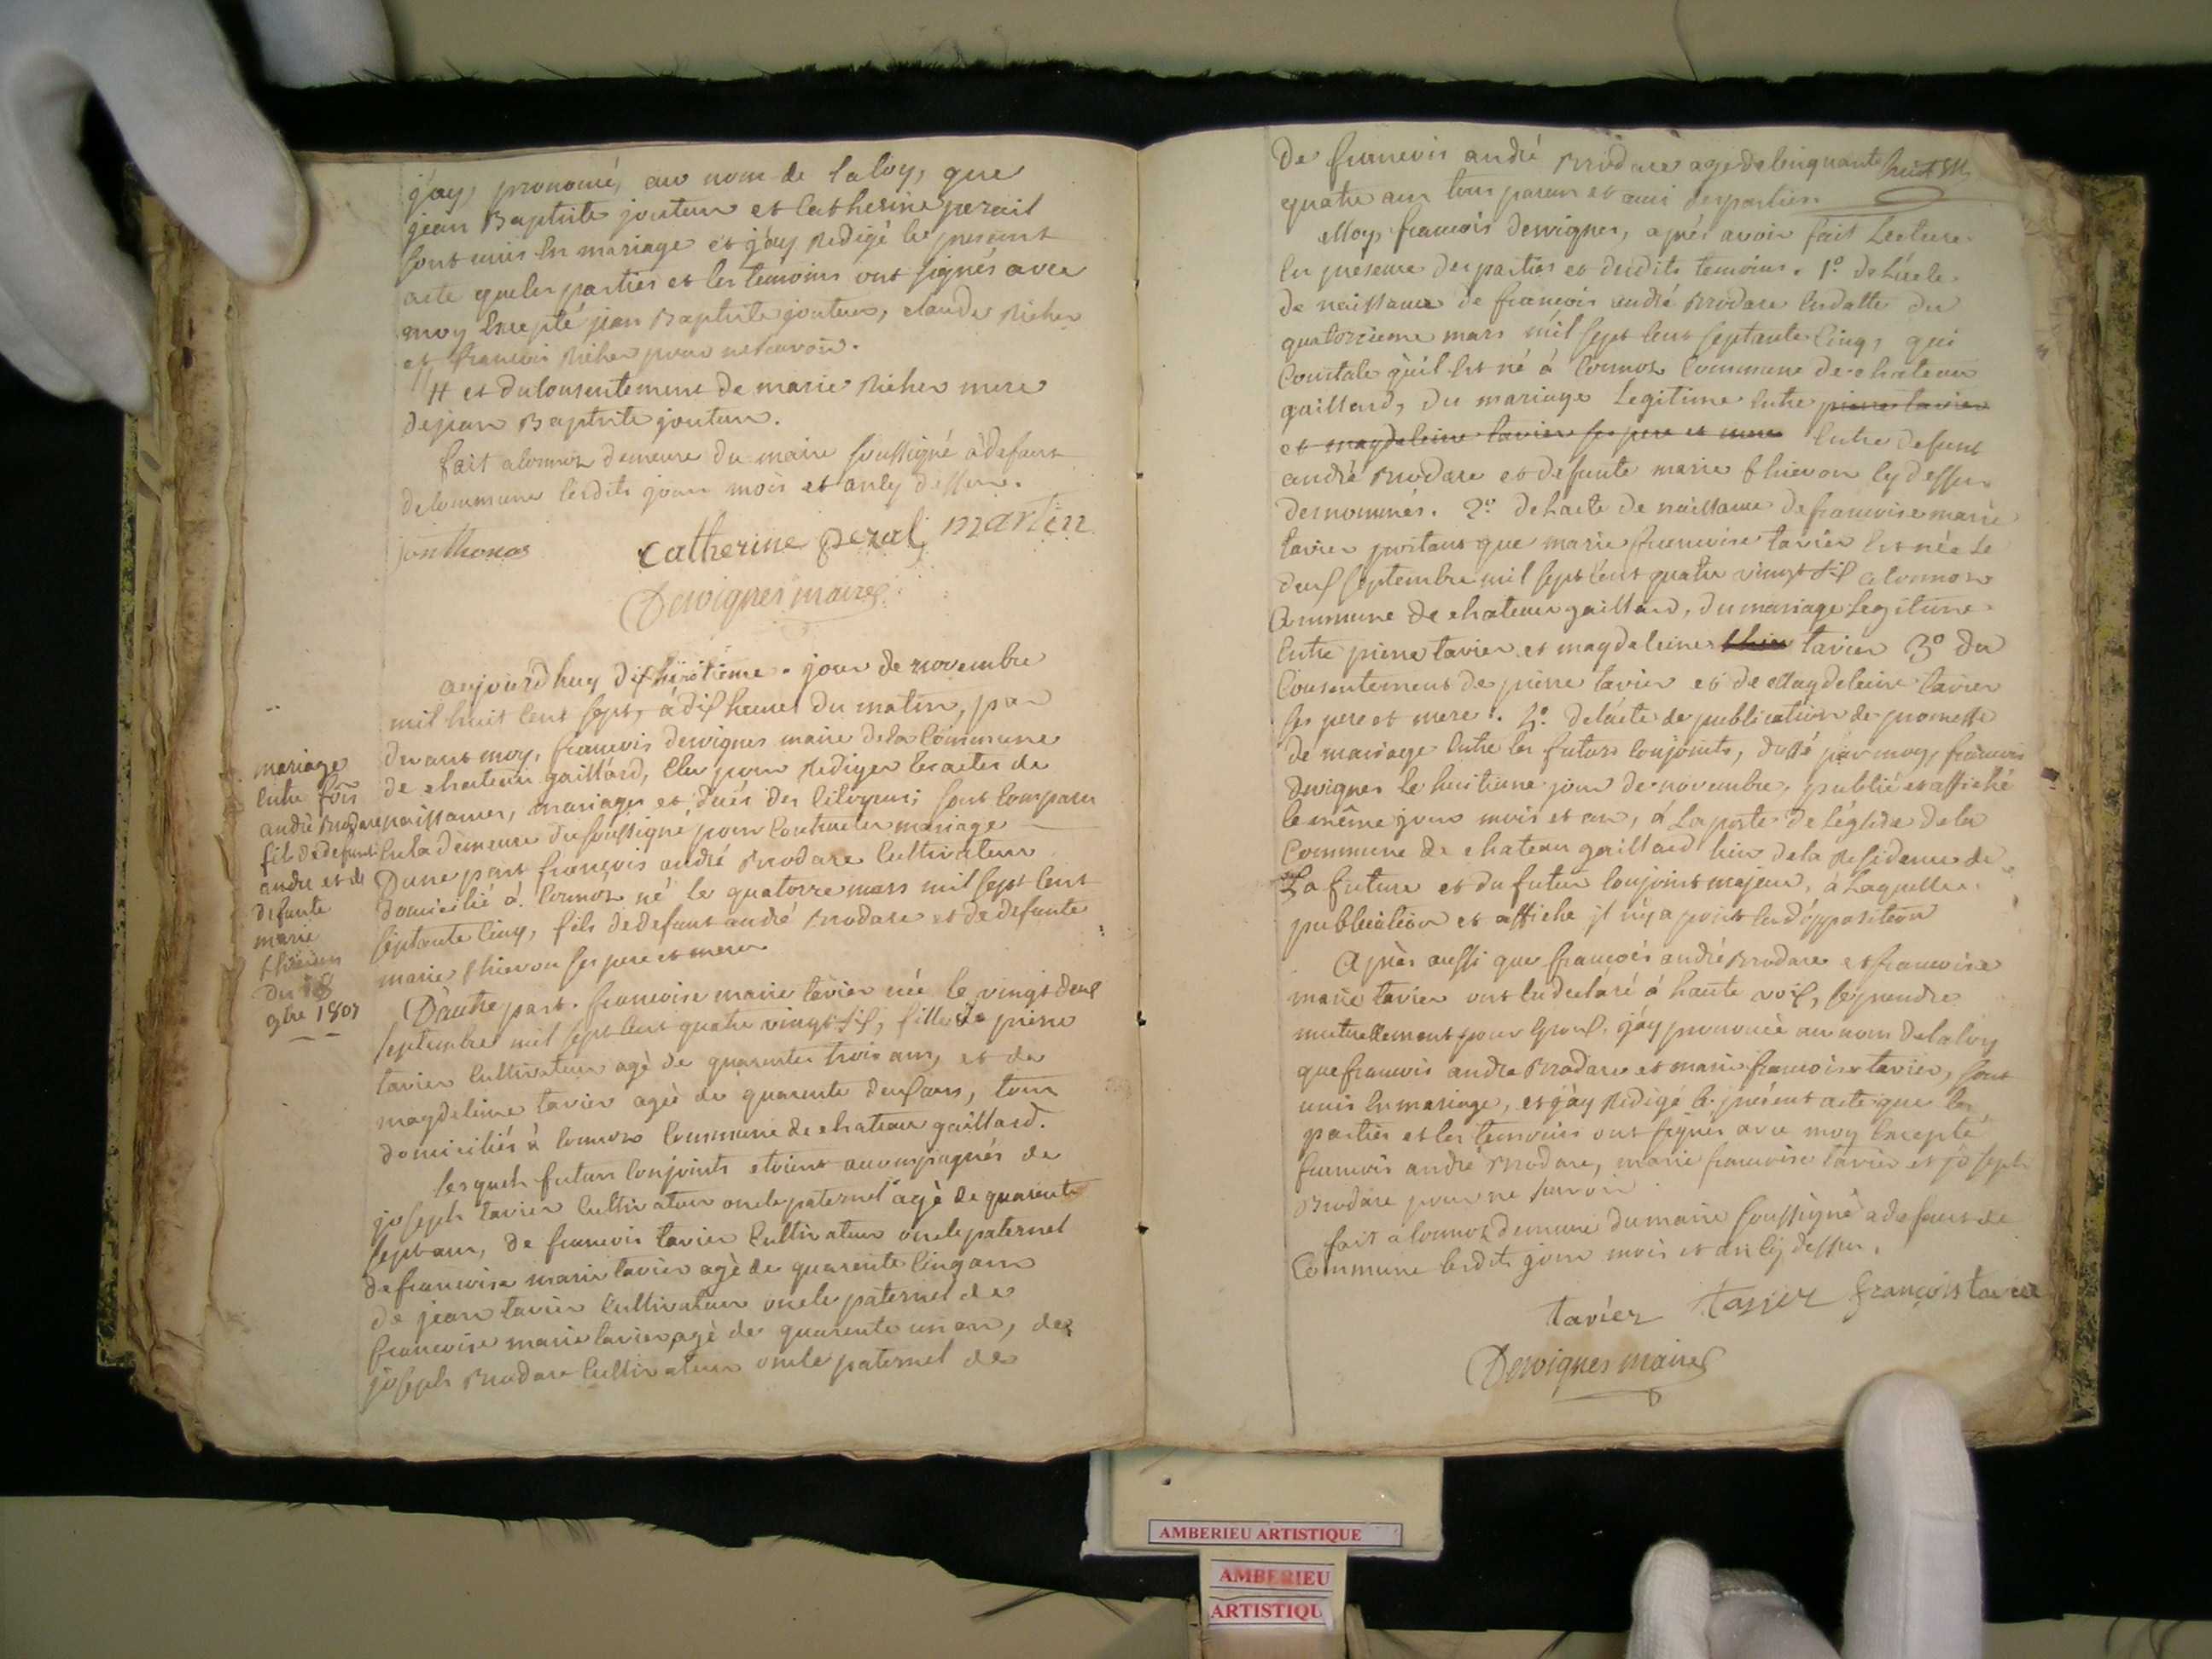 j'ay, pronomé, au nom de la loy, que
jean Baptiste jouteur et Catherine perait
sont unis En mariage et j'ay Redigé le present
acte que les parties et les temoins ont signés avec
moy Excepté jean Baptiste jouteur, claude Richer
et francois Richer pour ne savoir.
# et du Consentement de marie Richer mere
de jean Baptiste jouteur.
fait a Cormoz demeure du maire soussigné à defaut
de Commune lesdits jour mois et an Cy dessus.
jonthonas Catherine peral martin
Dervignes maire
mariage
Entre fois
andré Brodare
fils de defunt
andre et de
defunte
marie
thievon
du 18
9bre 1807
aujourdhuy dix huitieme jour de novembre
mil huit Cent sept, à dix heures du matin, par
devant moy, francois Dervignes maire de la Commune
de chateau gaillard, Elu pour Rediger les actes de
naissances, mariages et décés des Citoyens; sont Comparu
En la demeure du soussigné pour Contracter mariage
D'une part françois andré Brodare Cultivateur
domicilié à Cormoz né le quatorze mars mil sept Cent
septante Cinq, fils de defunt andré Brodare et de defunte
marie thievon ses pere et mere
D'autre part. francoise marie tavier née le vingt deux
septembre mil sept Cent quatre vingt six, fille de pierre
tavier Cultivateur agé de quarente trois ans, et de
magdeleine tavier agée de quarente deux ans, tous
domiciliés à Cormoz Commune de chateau gaillard.
lesquels futurs Conjoints etoient accompagnés de
joseph tavier Cultivateur oncle paternel agé de quarente
sept ans, de francois tavier Cultivateur oncle paternel
de francoise marie tavier agé de quarente Cinq ans
de jean tavier Cultivateur oncle paternel de
francoise marie tavier agé de quarente un an, de
joseph Brodare Cultivateur oncle paternel de
De francois andré Brodare agé de Cinquante huit
quatre ans tous parens et amis des parties
Moy, francois Dervignes, après avoir fait Lecture
En presence des parties et desdits temoins. 1º. de L'acte
de naissance de françois andré Brodare En datte du
quatorzieme mars mil sept Cent septante Cinq, qui
Constate qu'il Est né à Cormoz Commune de chateau
gaillard, du mariage Legitime Entre pierre tavier
et magdeleine tavier ses pere et mere Entre defunt
andré Brodare et defunte marie thievon Cy dessus
denommés. 2º. de L'acte de naissance de francoise marie
tavier portant que marie francoise tavier Est née Le
deux septembre mil sept Cent quatre vingt six a Cormoz
Commune de chateau gaillard, du mariage Legitime
Entre pierre tavier et magdeleine thie tavier 3º du
Consentement de pierre tavier et de Magdeleine tavier
ses pere et mere. 4º. de L'acte de publication de promesse
de mariage Entre les futurs Conjoints, dressé par moy, francois
Dervignes le huitieme jour de novembre, publié et affiché
le même jour mois et an, à La porte de l'église de la
Commune de chateau gaillard lieu de la Residence de
La future et du futur Conjoint majeur, à Laquelle
publication et affiche il n'y a point Eu d'opposition
Après aussi que françois andré Brodare et francoise
marie tavier ont Eu declaré à haute voix, se prendre
mutuellement pour Epoux. j'ay prononcé au nom de la loy
que francois andré Brodare et marie francoise tavier, sont
unis En mariage, et j'ay Redigé le présent acte que les
parties et les temoins ont signés avec moy Excepté
francois andré Brodare, marie francoise tavier et joseph
Brodare pour ne savoir.
fait a Cormoz demeure du maire soussigné a defaut de
Commune lesdits jour mois et an Cy dessus.
tavier tavier françois tavier
Dervignes maire
AMBERIEU ARTISTIQUE
AMBERIEU
ARTISTIQU